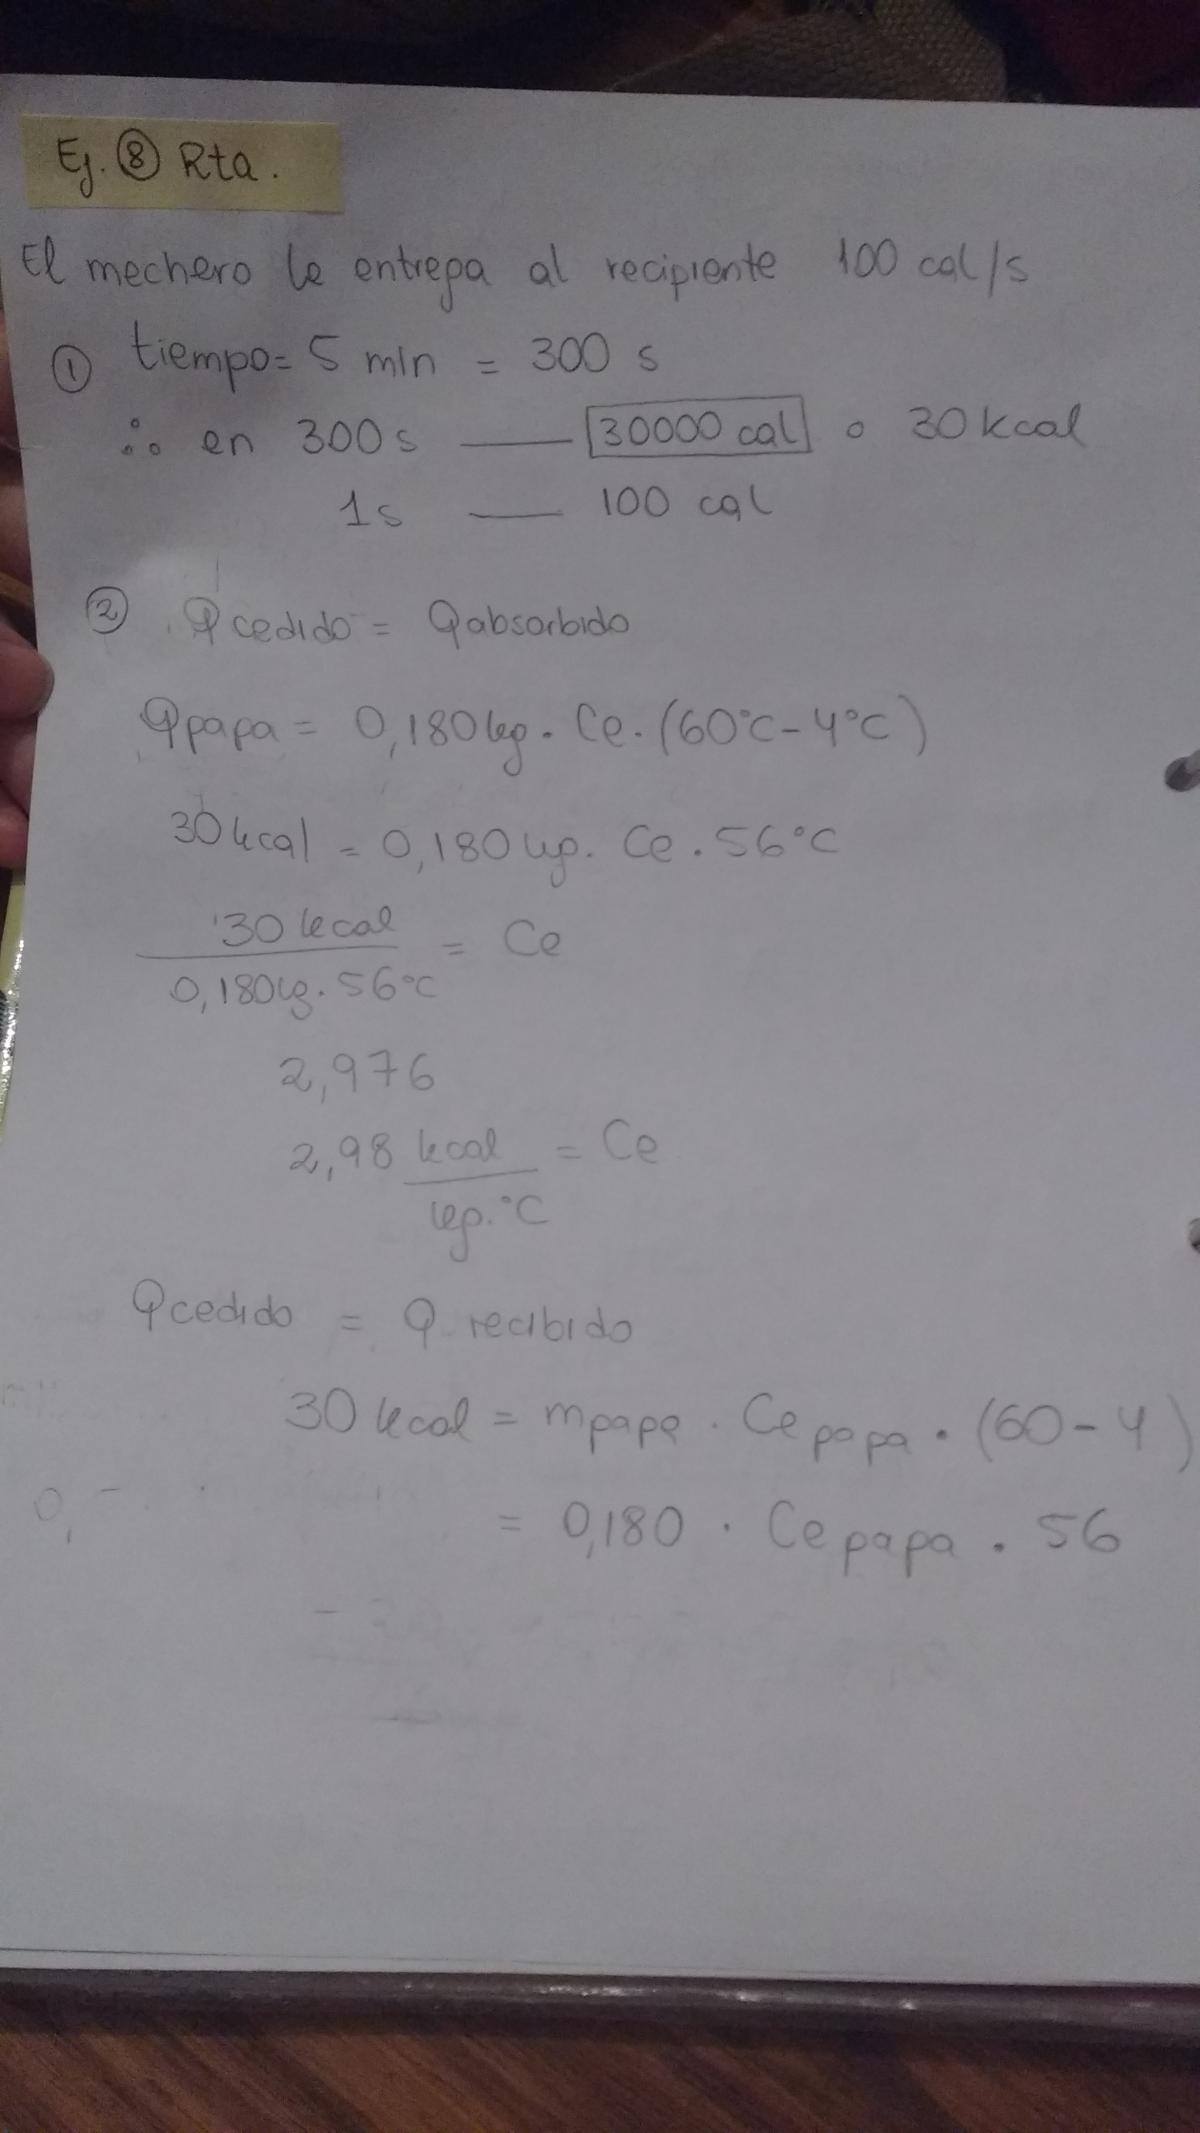 Ej. ⑧ Rta.
El mechero le entrega al recipiente 100 cal/s
① tiempo = 5 min = 300 s
∴ en 300 s — 30000 cal o 30 kcal
1s — 100 cal
② Qcedido = Qabsorbido
Qpapa = 0,180 kg . Ce . (60°C - 4°C)
30 kcal = 0,180 kg . Ce . 56°C
30 kcal / 0,180 kg . 56°C = Ce
2,976
2,98 kcal / kg.°C = Ce
Qcedido = Q recibido
30 kcal = m papa . Ce papa . (60 - 4)
= 0,180 . Ce papa . 56